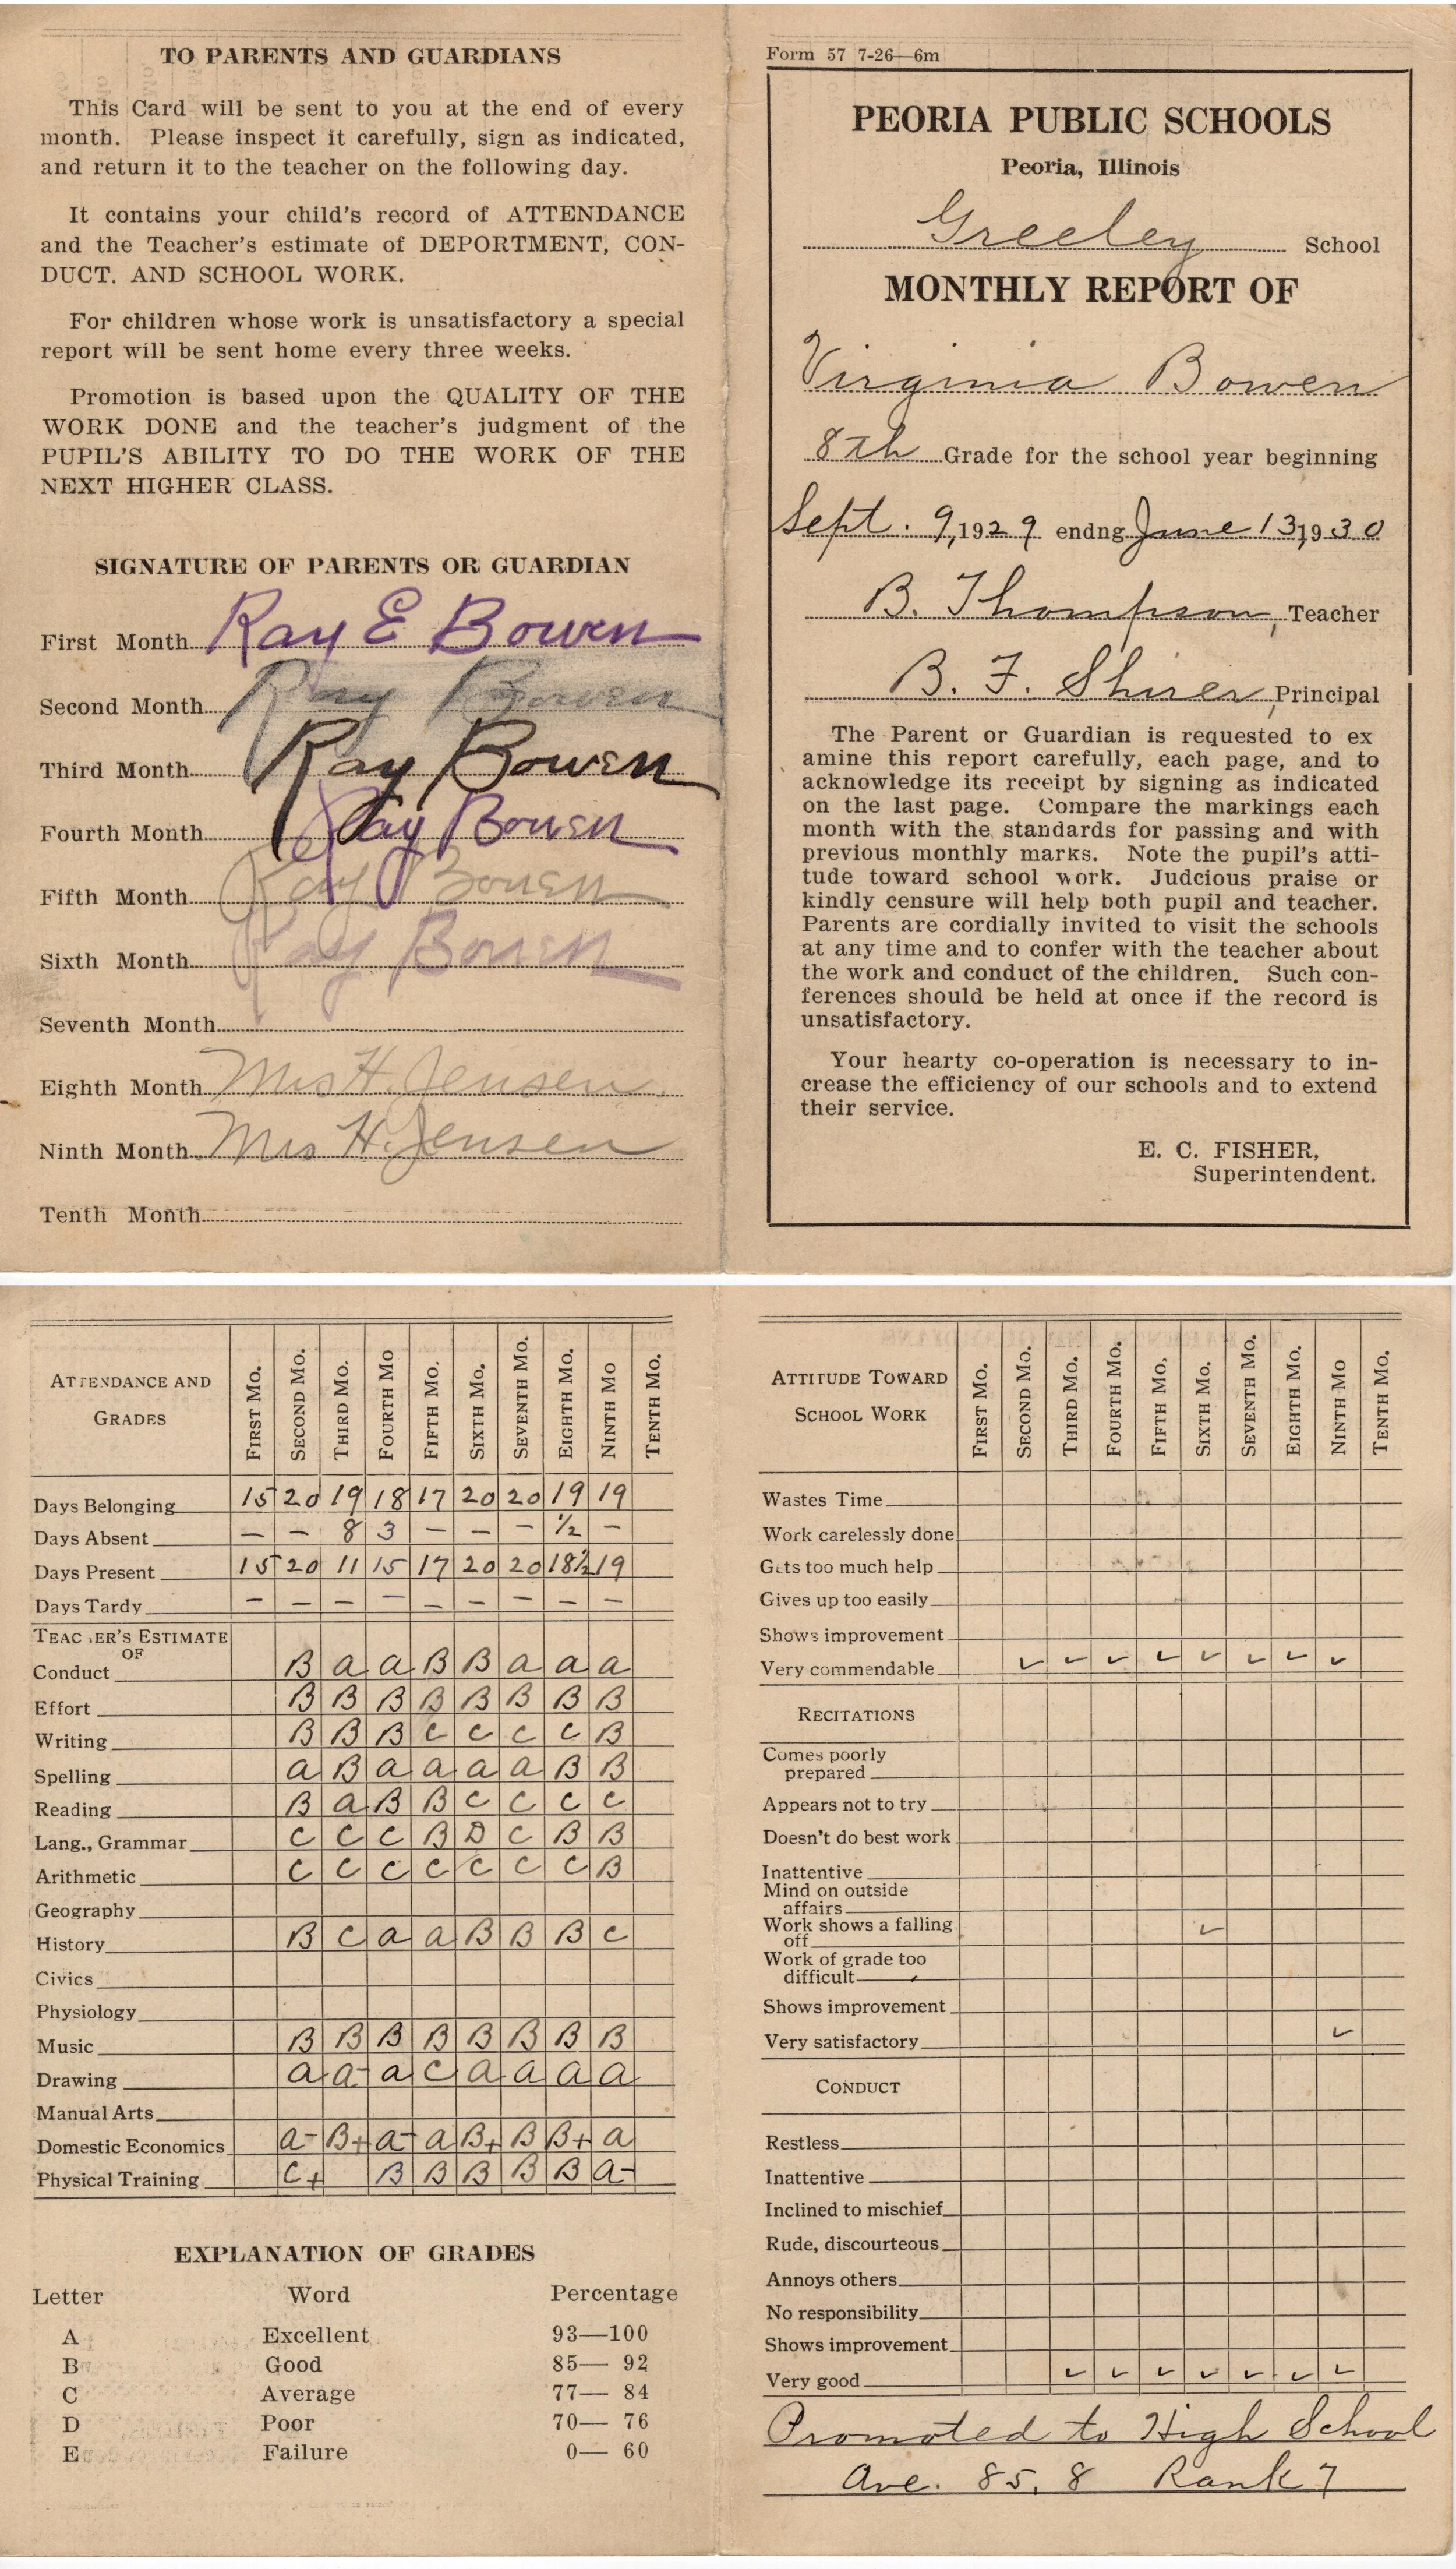 TO PARENTS AND GUARDIANS
This Card will be sent to you at the end of every
month. Please inspect it carefully, sign as indicated,
and return it to the teacher on the following day.
It contains your child's record of ATTENDANCE
and the Teacher's estimate of DEPORTMENT, CON-
DUCT. AND SCHOOL WORK.
For children whose work is unsatisfactory a special
report will be sent home every three weeks.
Promotion is based upon the QUALITY OF THE
WORK DONE and the teacher's judgment of the
PUPIL'S ABILITY TO DO THE WORK OF THE
NEXT HIGHER CLASS.
SIGNATURE OF PARENTS OR GUARDIAN
First Month Ray E Bowen
Second Month Ray Bowen
Third Month Ray Bowen
Fourth Month Ray Bowen
Fifth Month Ray Bowen
Sixth Month Ray Bowen
Seventh Month
Eighth Month Mrs H. Jensen
Ninth Month Mrs H. Jensen
Tenth Month
Form 57 7-26—6m
PEORIA PUBLIC SCHOOLS
Peoria, Illinois
Greeley School
MONTHLY REPORT OF
Virginia Bowen
8th Grade for the school year beginning
Sept. 9, 1929 endng June 13, 1930
B. Thompson, Teacher
B. F. Shirer, Principal
The Parent or Guardian is requested to ex
amine this report carefully, each page, and to
acknowledge its receipt by signing as indicated
on the last page. Compare the markings each
month with the standards for passing and with
previous monthly marks. Note the pupil's atti-
tude toward school work. Judcious praise or
kindly censure will help both pupil and teacher.
Parents are cordially invited to visit the schools
at any time and to confer with the teacher about
the work and conduct of the children. Such con-
ferences should be held at once if the record is
unsatisfactory.
Your hearty co-operation is necessary to in-
crease the efficiency of our schools and to extend
their service.
E. C. FISHER,
Superintendent.
ATTENDANCE AND GRADES FIRST MO. SECOND MO. THIRD MO. FOURTH MO FIFTH MO. SIXTH MO. SEVENTH MO. EIGHTH MO. NINTH MO TENTH MO.
Days Belonging 15 20 19 18 17 20 20 19 19
Days Absent — — 8 3 — — — ½ —
Days Present 15 20 11 15 17 20 20 18½ 19
Days Tardy — — — — — — — — —
TEACHER'S ESTIMATE
OF
Conduct B a a B B a a a
Effort B B B B B B B B
Writing B B B C C C C B
Spelling a B a a a a B B
Reading B a B B C C C C
Lang., Grammar C C C B D C B B
Arithmetic C C C C C C C B
Geography
History B C a a B B B C
Civics
Physiology
Music B B B B B B B B
Drawing a a- a C a a a a
Manual Arts
Domestic Economics a- B+ a- a B+ B B+ a
Physical Training C+ B B B B B a-
EXPLANATION OF GRADES
Letter Word Percentage
A Excellent 93—100
B Good 85— 92
C Average 77— 84
D Poor 70— 76
E Failure 0— 60
ATTITUDE TOWARD SCHOOL WORK FIRST MO. SECOND MO. THIRD MO. FOURTH MO. FIFTH MO. SIXTH MO. SEVENTH MO. EIGHTH MO. NINTH MO TENTH MO.
Wastes Time
Work carelessly done
Gets too much help
Gives up too easily
Shows improvement
Very commendable ✓ ✓ ✓ ✓ ✓ ✓ ✓ ✓
RECITATIONS
Comes poorly
prepared
Appears not to try
Doesn't do best work
Inattentive
Mind on outside
affairs
Work shows a falling
off ✓
Work of grade too
difficult
Shows improvement
Very satisfactory ✓
CONDUCT
Restless
Inattentive
Inclined to mischief
Rude, discourteous
Annoys others
No responsibility
Shows improvement
Very good ✓ ✓ ✓ ✓ ✓ ✓ ✓
Promoted to High School
Ave. 85.8 Rank 7